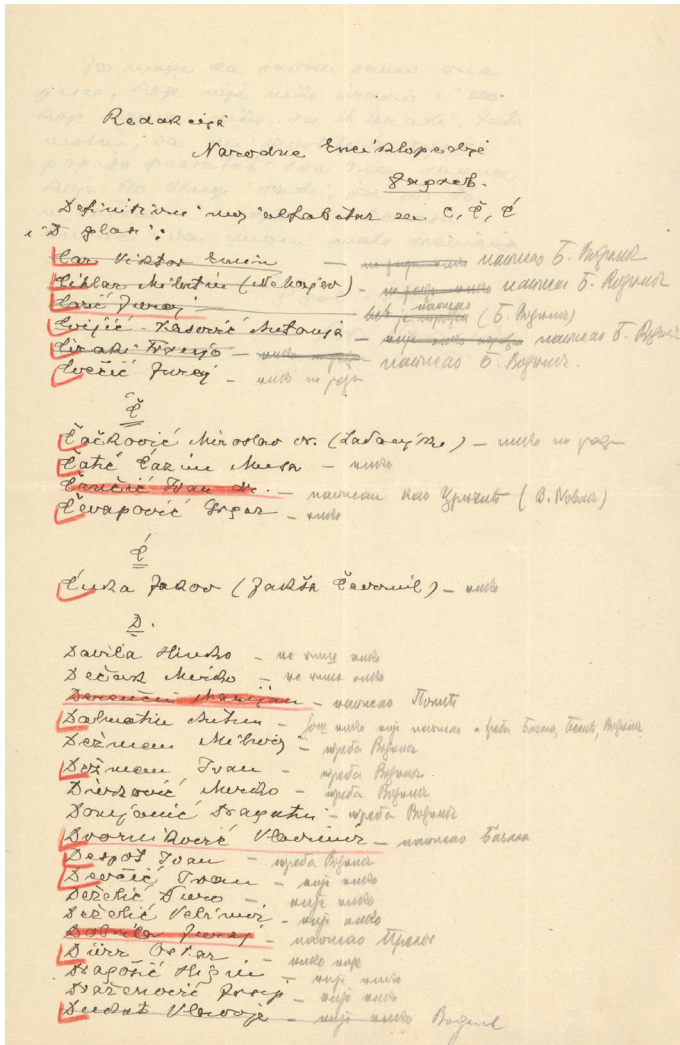 Redakcija
Narodne Enciklopedije
Zagreb.
Definitivni alfabetar za C, Č, Ć
i D glasi:
Car Viktor Emin — написао Б. Водник
Cihlar Milutin (Nehajev) — написао Б. Водник
Carić Juraj — написао (Б. Водник)
Cvijić-Lasović Antonija — написао Б. Водник
Ciraki Franjo — написао Б. Водник.
Cvečić Juraj — нико не ради
Č
Čačković Miroslav dr. (Ladanjski) — нико не ради
Čatić Ćazim Musa — нико
Črnčić Ivan dr. — написан као Црнчић (В. Novak)
Čevapović Grgar — нико
Ć
Ćuka Jakov (Jakša Čedomil) — нико
D.
Davila Hinko — не пише нико
Dečak Mirko — не пише нико
Derenčin Marijan — написао
Dalmatin Antun — још нико није написао а треба Водник
Dežman Milivoj — треба Водник
Dežman Ivan — треба Водник.
Divković Mirko — треба Водник
Domjanić Dragutin — треба Водник
Dvorniković Vladimir — написао
Despot Ivan — треба Водник
Devčić Ivan — није нико
Deželić Đuro — није нико
Deželić Velimir — није нико
Dobrila Juraj — написао Прелог
Dürr Oskar — нико није
Dragošić Higin — није нико
Draženović Josip — није нико
Dukat Vladoje — није нико Водник